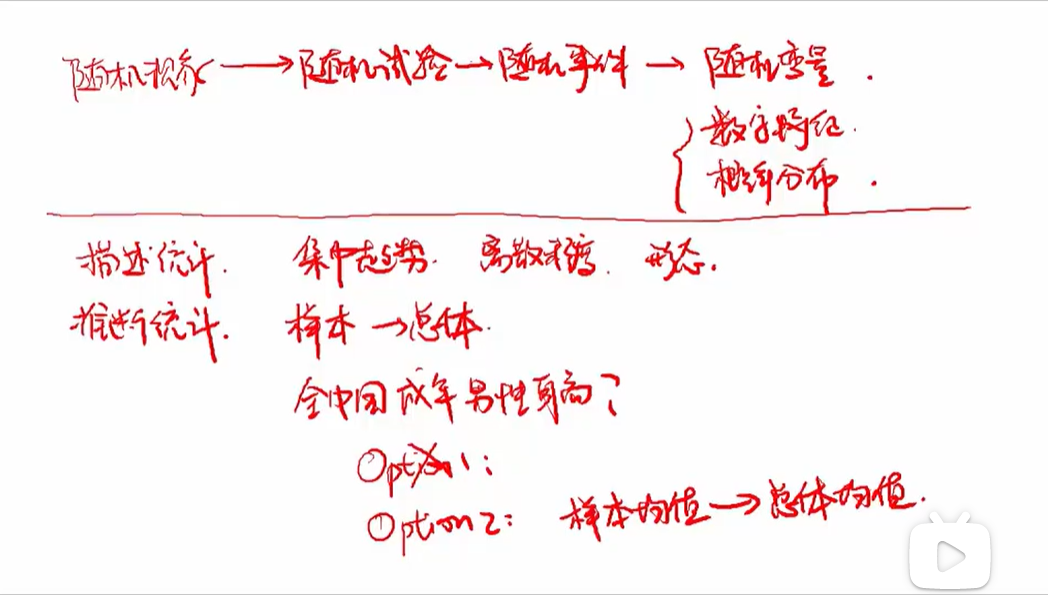 随机现象 → 随机试验 → 随机事件 → 随机变量.
数字特征.
概率分布.
描述统计. 集中趋势. 离散程度. 形态.
推断统计. 样本 → 总体.
全中国成年男性身高?
Option 1:
Option 2: 样本均值 → 总体均值.